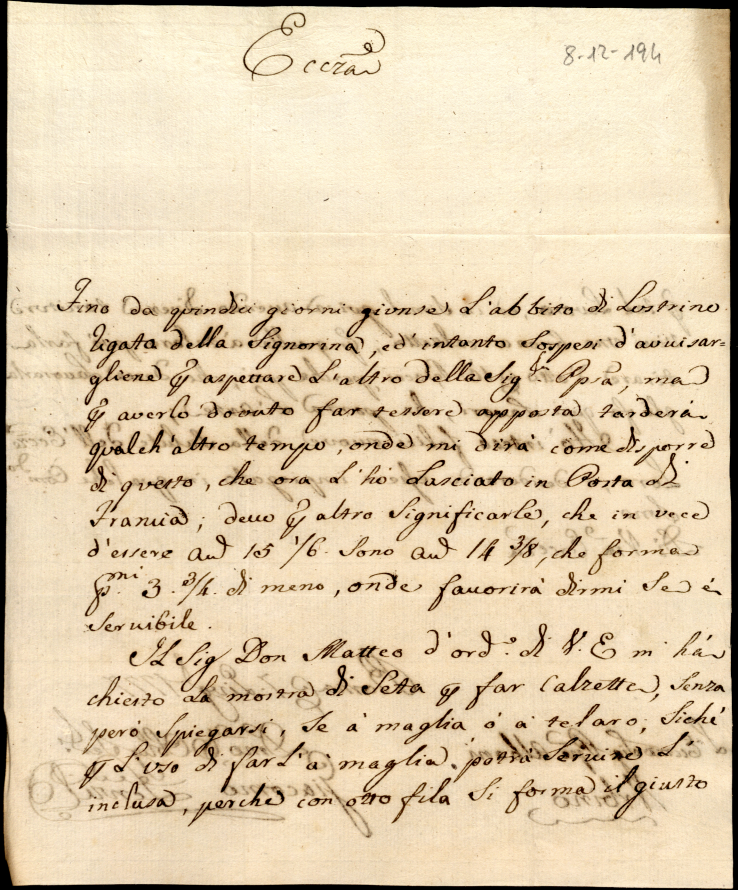 Eccza
8-12-194
Fino da quindici giorni giunse L'abbito di Lustrino
rigato della Signorina, ed' intanto Sospesi d'avvisar=
gliene p aspettare L'altro della Sig.ra Ppsa, ma
p averlo dovuto far tessere apposta tarderà
qualch'altro tempo, onde mi dirà come disporre
di questo, che ora L'hò Lasciato in Posta di
Francia; devo p altro significarle, che in vece
d'essere au 15 1/6. Sono au 14 3/8, che forma
pmi 3. 3/4. di meno, onde favorirà dirmi Se è
Servibile.
Il Sig Don Matteo d'ord.e di V. E mi hà
chiesto La mostra di Seta p far Calzette, Senza
però Spiegarsi, Se à maglia ò à telaro; Siché
p L'uso di farL'à maglia potrà Servire L'
inclusa, perche con otto fila Si forma il giusto